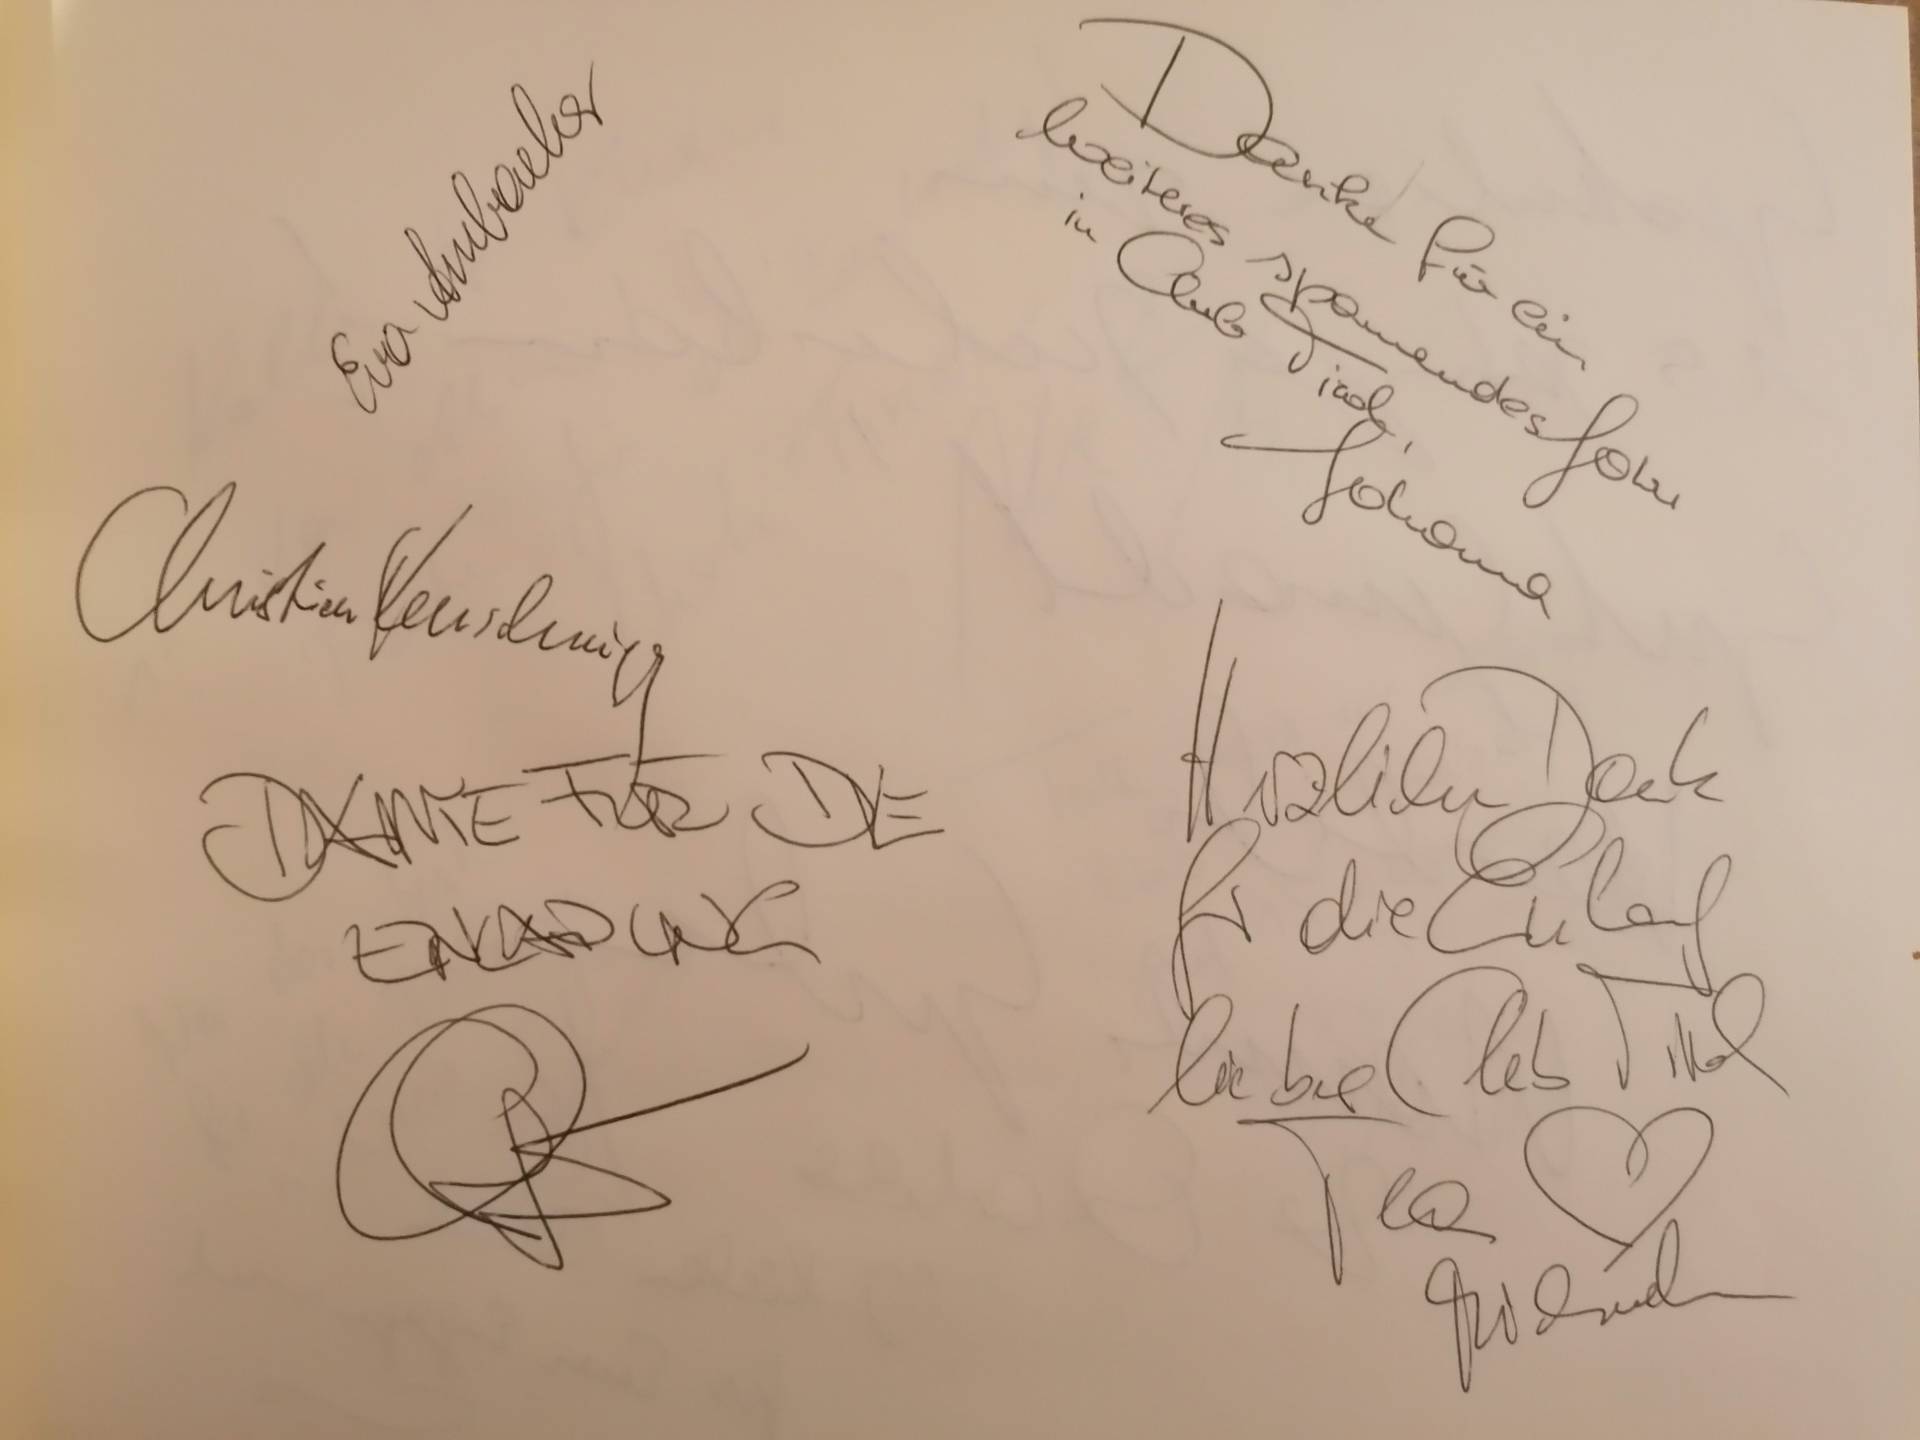 Eva
Christian
DANKE FÜR DIE
EINLADUNG
Danke für ein
weiteres spannendes Jahr
in Club Tirol,
Johanna
Herzlichen Dank
für die Einladung
liebe Club Tirol
Tea